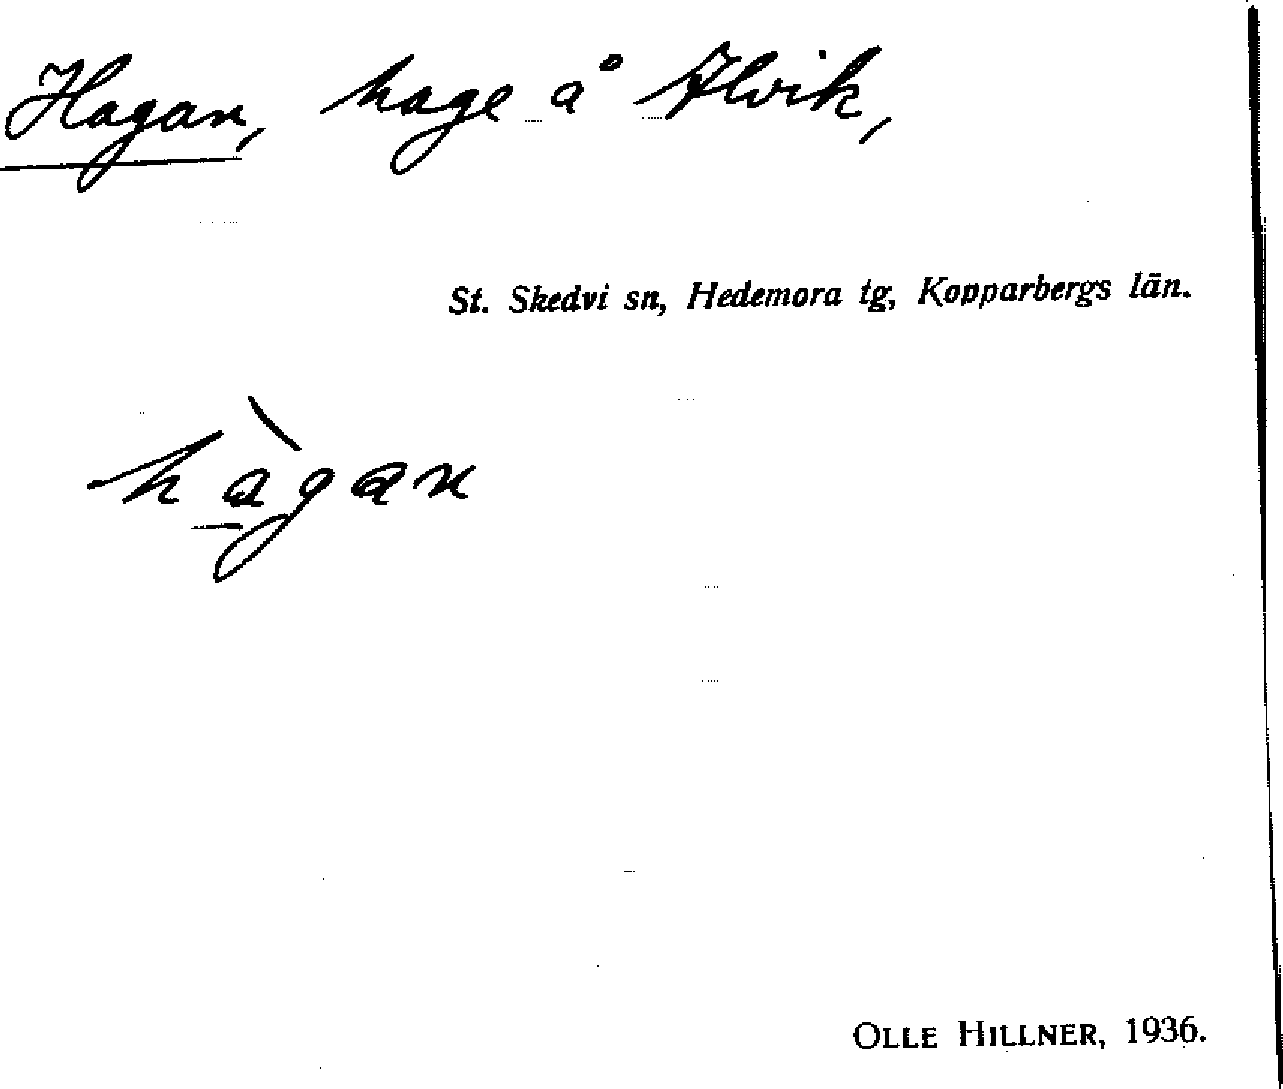 Hagan, hage å Alvik,
St. Skedvi sn, Hedemora tg, Kopparbergs län.
hàgan
OLLE HILLNER, 1936.